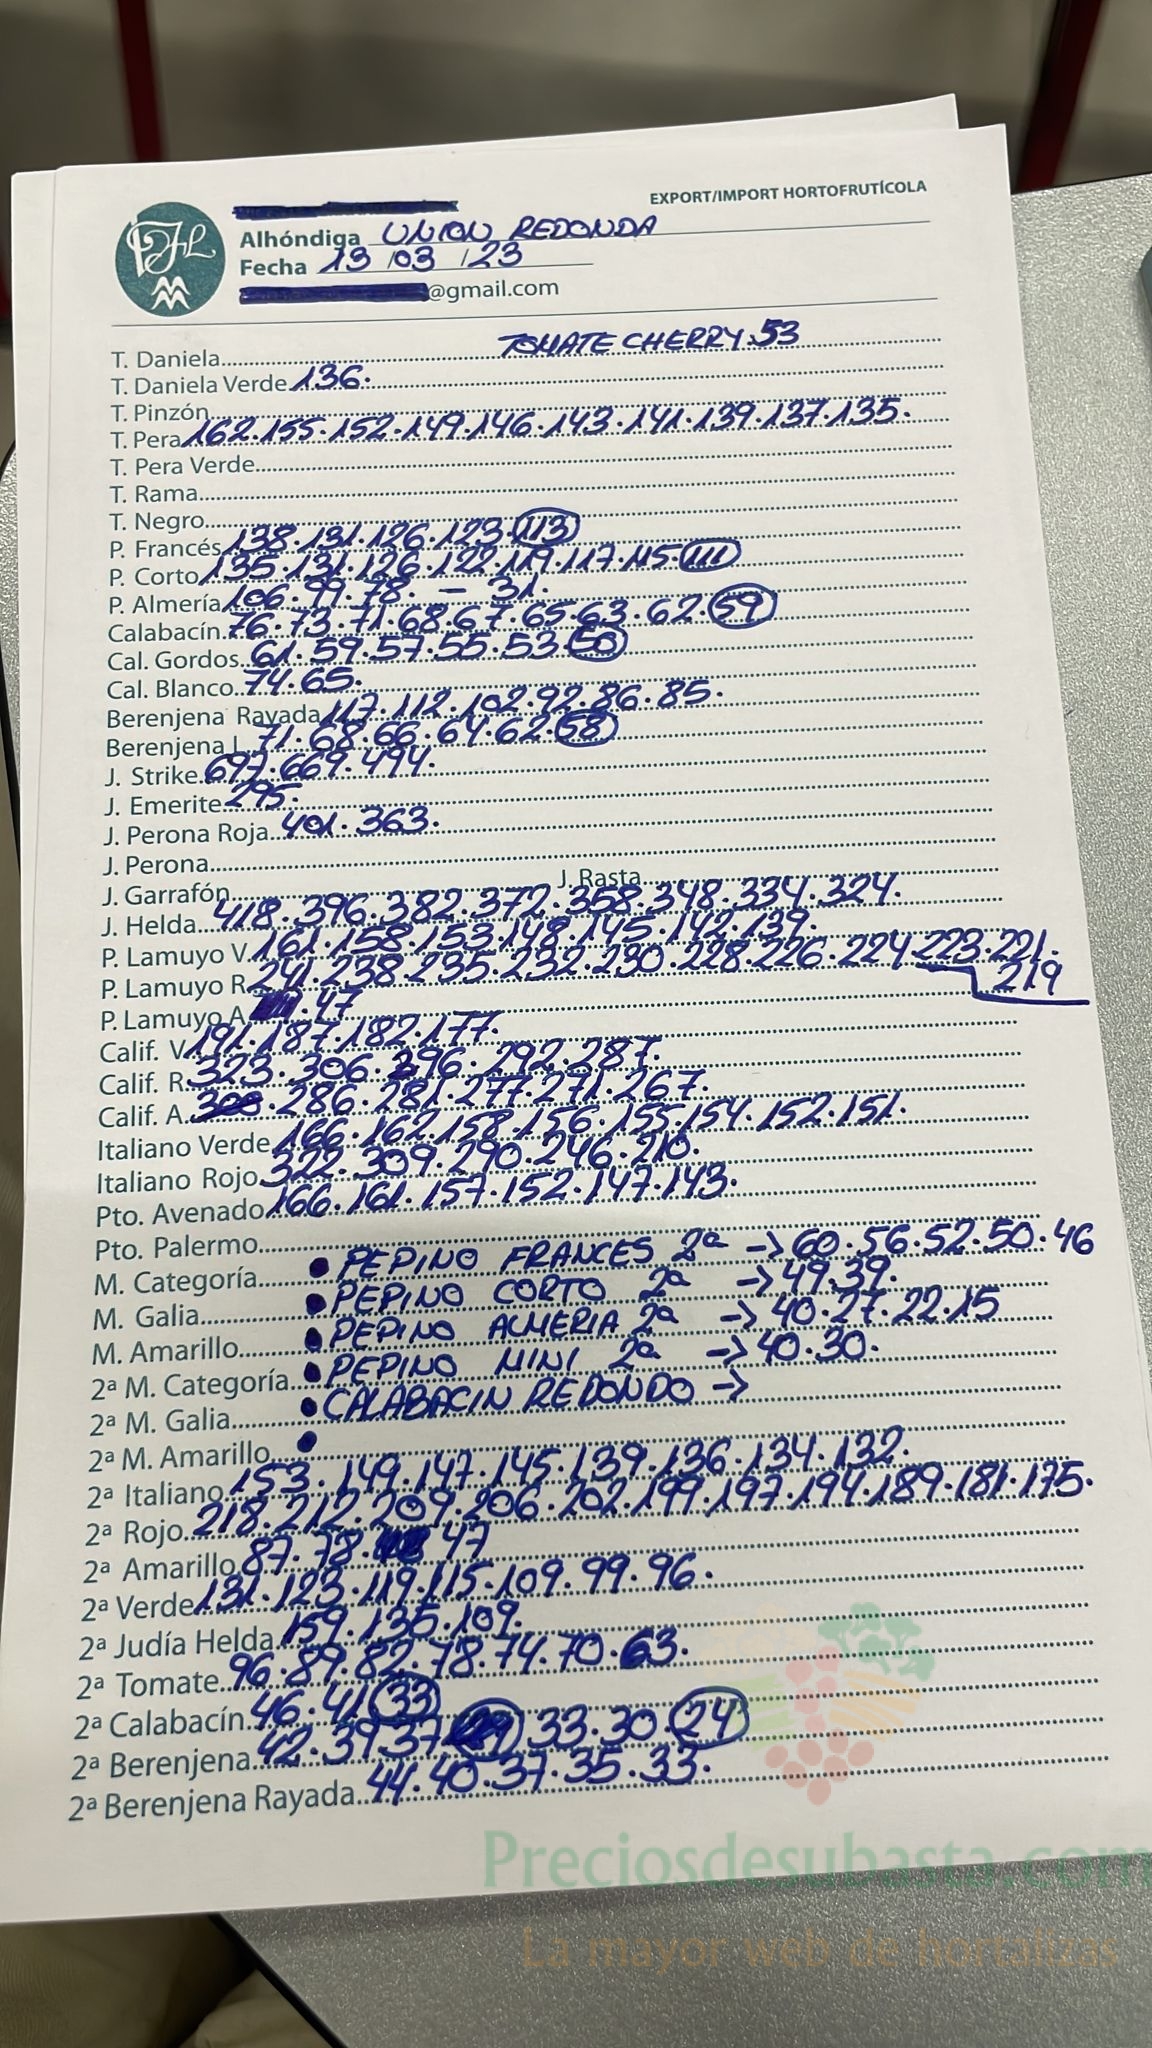 EXPORT/IMPORT HORTOFRUTÍCOLA
Alhóndiga UNION REDONDA
Fecha 13/03/23
@gmail.com
T. Daniela TOMATE CHERRY.53
T. Daniela Verde 136.
T. Pinzón
T. Pera 162.155.152.149.146.143.141.139.137.135.
T. Pera Verde
T. Rama
T. Negro
P. Francés 138.131.126.123.113
P. Corto 135.131.126.122.119.117.115.111
P. Almería 106.99.78. - 31.
Calabacín 76.73.71.68.67.65.63.62.59
Cal. Gordos 61.59.57.55.53.50
Cal. Blanco 74.65.
Berenjena Rayada 117.112.102.92.86.85.
Berenjena L. 71.68.66.64.62.58
J. Strike 697.669.494.
J. Emerite 295.
J. Perona Roja 401.363.
J. Perona
J. Garrafón J. Rasta
J. Helda 418.396.382.372.358.348.334.324.
P. Lamuyo V. 161.158.153.148.145.142.139.
P. Lamuyo R. 241.238.235.232.230.228.226.224.223.221.
219
P. Lamuyo A. .47
Calif. V. 191.187.182.177.
Calif. R. 323.306.296.292.287.
Calif. A. .286.281.277.271.267.
Italiano Verde 166.162.158.156.155.154.152.151.
Italiano Rojo 322.309.290.246.210.
Pto. Avenado 166.161.157.152.147.143.
Pto. Palermo
M. Categoría • PEPINO FRANCES 2ª -> 60.56.52.50.46
M. Galia • PEPINO CORTO 2ª -> 49.39.
M. Amarillo • PEPINO ALMERIA 2ª -> 40.27.22.15
2ª M. Categoría • PEPINO MINI 2ª -> 40.30.
2ª M. Galia • CALABACIN REDONDO ->
2ª M. Amarillo •
2ª Italiano 153.149.147.145.139.136.134.132.
2ª Rojo 218.212.209.206.202.199.197.194.189.181.175.
2ª Amarillo 87.78. 47
2ª Verde 131.123.119.115.109.99.96.
2ª Judía Helda 159.135.109.
2ª Tomate 96.89.82.78.74.70.63.
2ª Calabacín 46.41.33
2ª Berenjena 42.39.37. 33.30.24
2ª Berenjena Rayada 44.40.37.35.33.
Preciosdesubasta.com
La mayor web de hortalizas